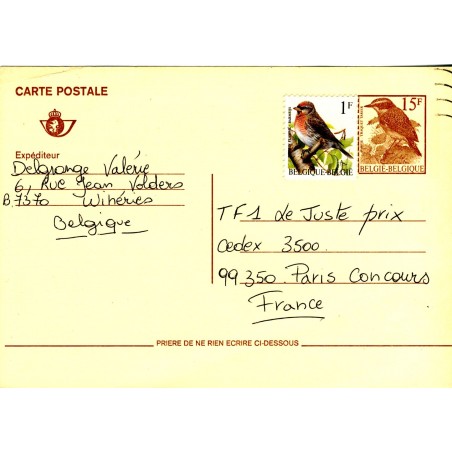 CARTE POSTALE
1F
BELGIQUE-BELGIË
15F
BELGIE-BELGIQUE
Expéditeur
Delgrange Valérie
6, Rue Jean Volders
B.7370 Wihéries
Belgique
TF1 Le Juste prix
Cedex 3500
99350 Paris Concours
France
PRIERE DE NE RIEN ECRIRE CI-DESSOUS